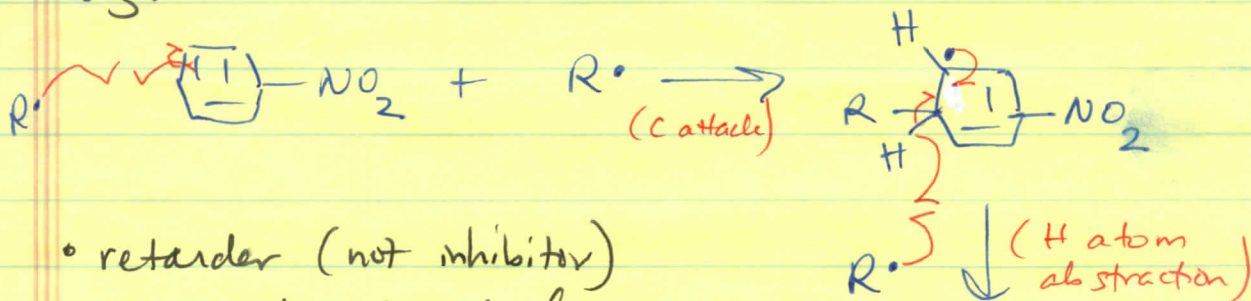 H
R• NO₂ + R• (C attack) R NO₂
H
• retarder (not inhibitor)
R• (H atom
abstraction)